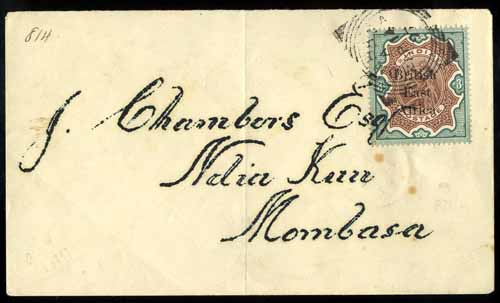 814
British
East
Africa
POSTAGE
J. Chambors Esq
Ndia Kuu
Mombasa